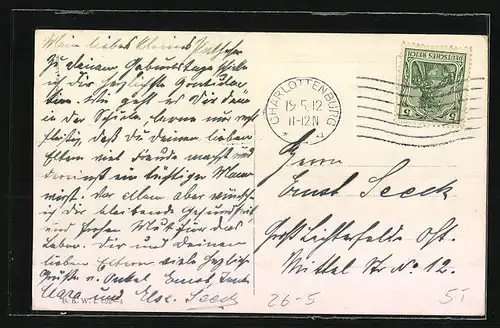 Mein liebes kleines Patchen
Zu Deinem Geburtstage schicke
ich Dir herzlichste Gratula-
tion. Wie geht es Dir denn
in der Schule, lerne nur recht
fleißig, daß Du Deinen lieben
Eltern viel Freude machst und
dereinst ein tüchtiger Mann
wirst. Vor allem aber wünsche
ich Dir bleibende Gesundheit
und frohen Mut für das
Leben. Dir und Deinen
lieben Eltern viele herzliche
Grüße v. Onkel Ernst, Tante
Clara und Else Seeck
B. K. W. I.
CHARLOTTENBURG
19.5.12
11-12N
DEUTSCHES REICH
5 5
Herrn
Ernst Seeck
Groß Lichterfelde Ost.
Mittel Str No 12.
26-5
5I